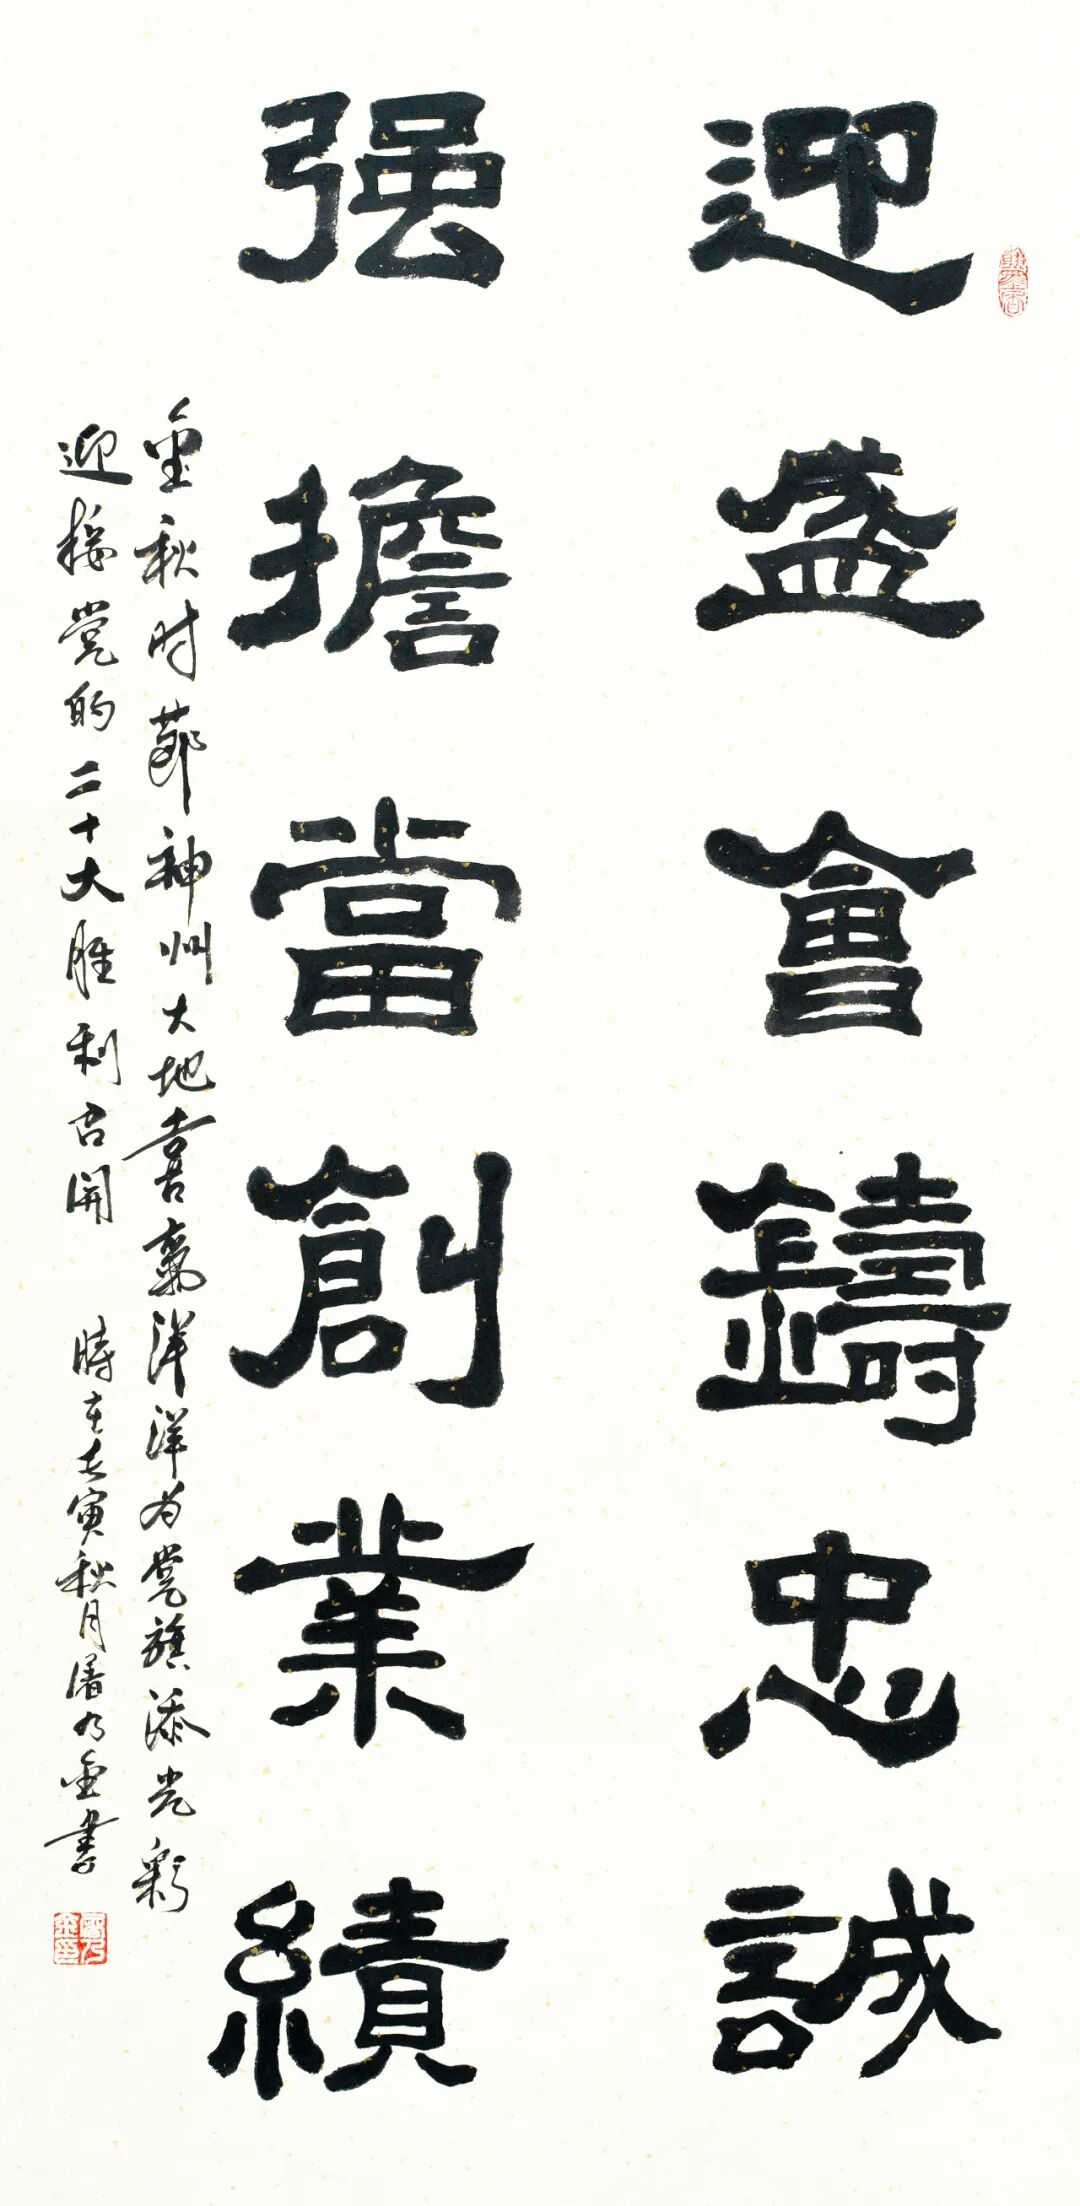 迎盛會鑄忠誠
强擔當創業績
金秋时節神州大地喜氣洋洋为党旗添光彩
迎接党的二十大胜利召開 時在壬寅秋月屠乃金書